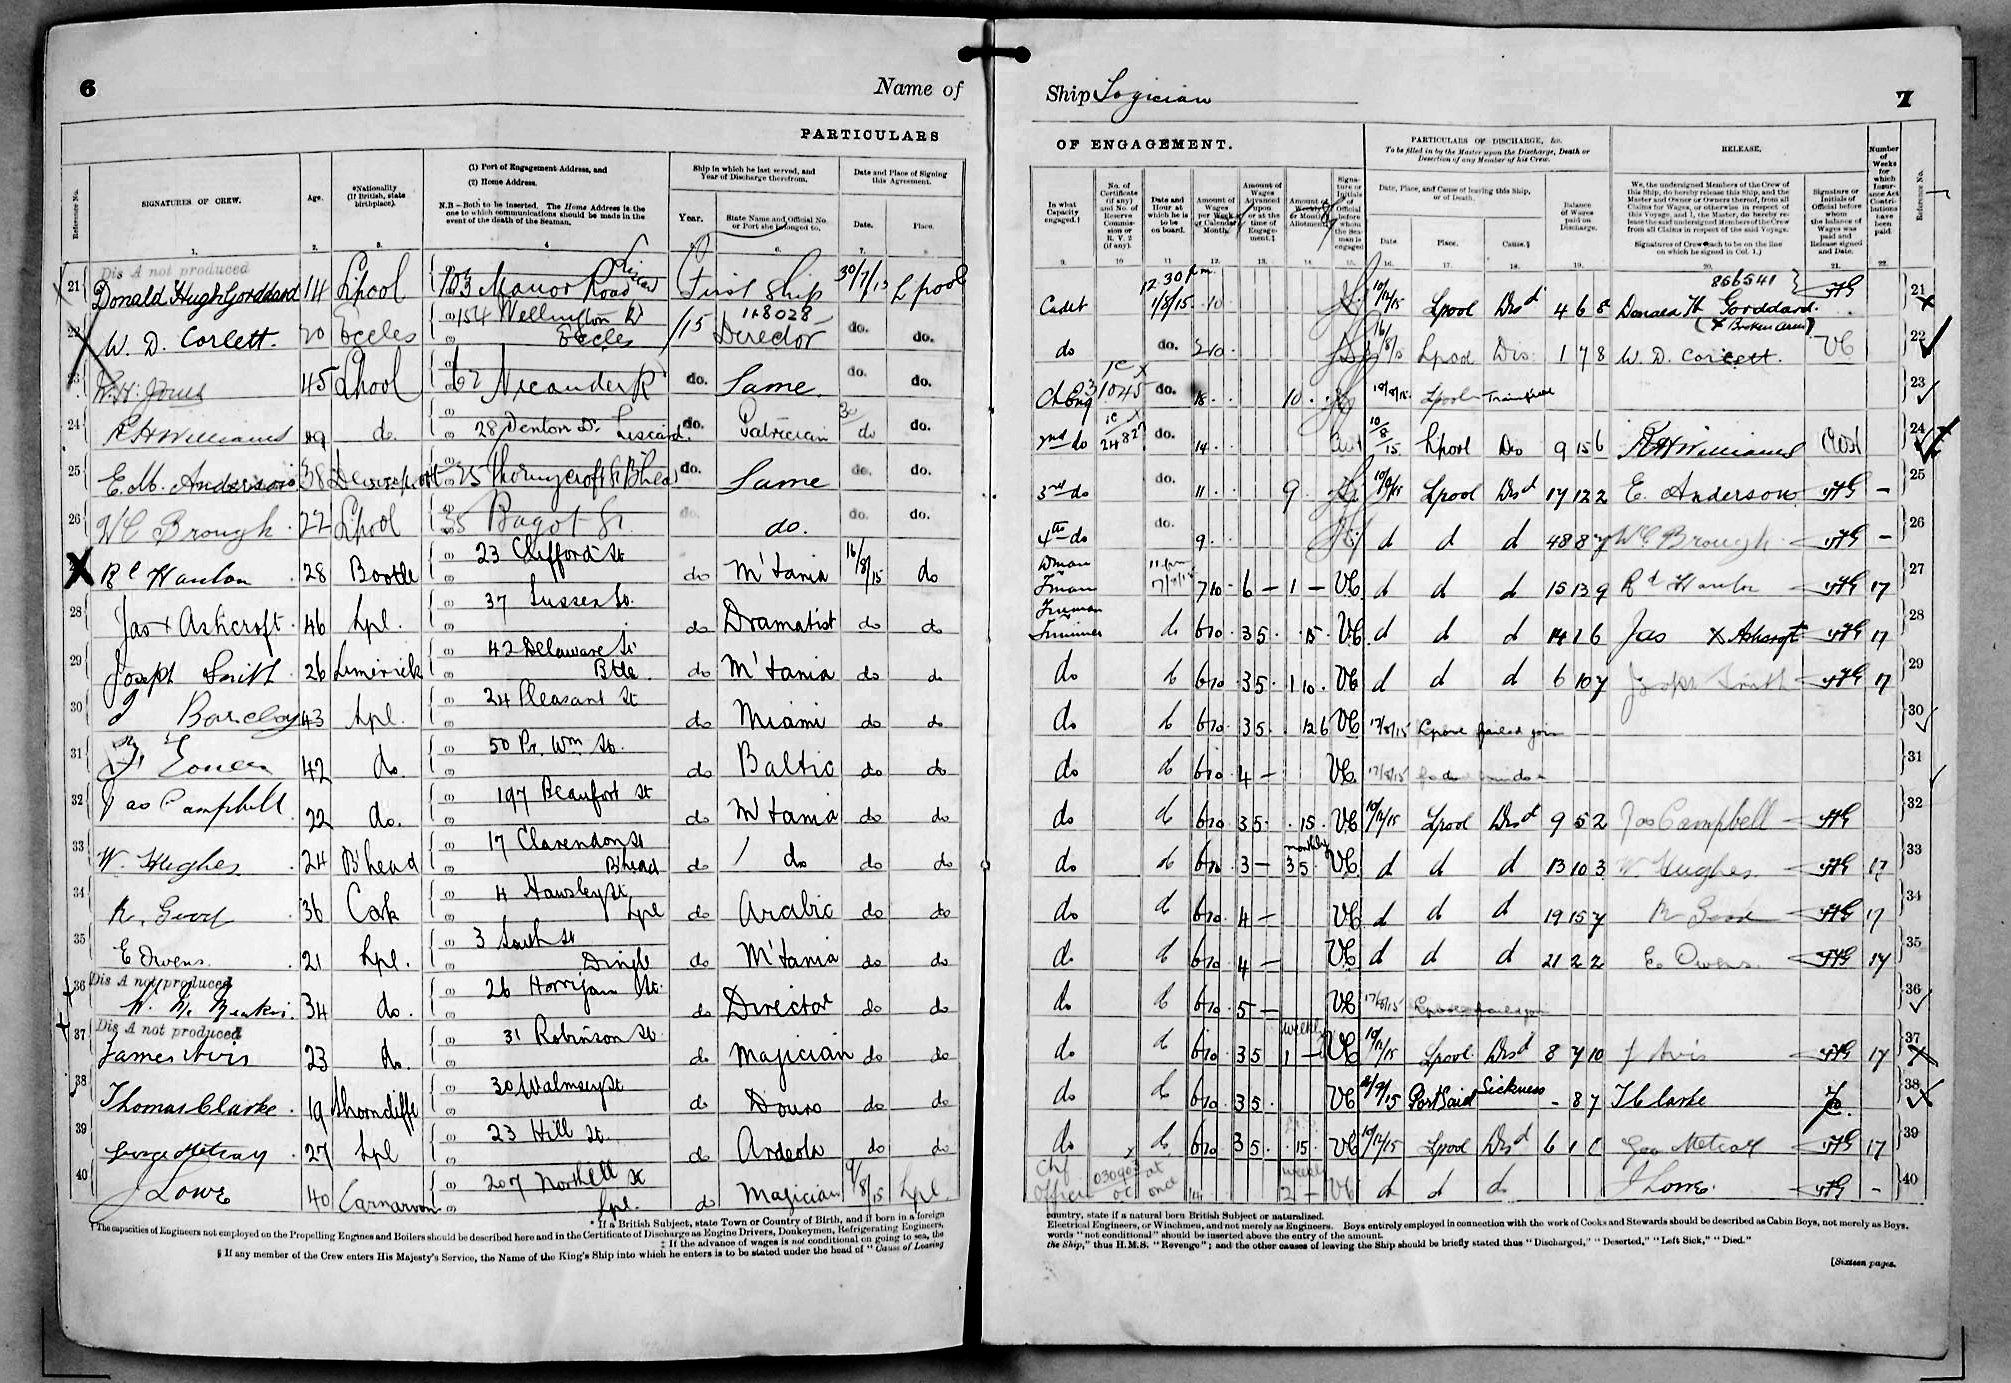 6
Name of
PARTICULARS
Reference No.
SIGNATURES OF CREW.
Age.
*Nationality
(If British, state
birthplace).
(1) Port of Engagement Address, and
(2) Home Address.
N.B.—Both to be inserted. The Home Address is the
one to which communications should be made in the
event of the death of the Seaman.
Ship in which he last served, and
Year of Discharge therefrom.
Year.
State Name and Official No.
or Port she belonged to.
Date and Place of Signing
this Agreement.
Date.
Place.
1. 2. 3. 4. 6. 7.
21 Dis A not produced
Donald Hugh Gorddard 14 Lpool 103 Manor Road Liscard First Ship 30/7/15 Lpool
22 W. D. Corlett. 20 Eccles 154 Wellington Rd Eccles /15 118028 Director do. do.
23 W. H. Jones 45 Lpool 62 Nicander Rd do. Same. do. do.
24 R H Williams 29 do. 28 Denton Dr. Liscard. do. Patrician 30 do do.
25 E. M. Anderson 38 Devonport 25 Thornycroft St B'head do. Same do. do.
26 W C Brough 22 Lpool 35 Bagot St do. do. do. do.
27 Rd Hanlon 28 Bootle 23 Clifford St do M'tania 16/8/15 do
28 Jas + Ashcroft 46 Lpl. 37 Sussex St. do Dramatist do do
29 Joseph Smith 26 Limerick 42 Delaware St Btle. do M'tania do do
30 J Barclay 43 Lpl. 24 Pleasant St do Miami do do
31 42 do. 50 Pr. Wm St. do Baltic do do
32 Jas Campbell 22 do. 197 Beaufort St do M'tania do do
33 W. Hughes 24 B'head 17 Clarendon St B'head do do do do
34 36 Cork 4 Lpl do Arabic do do
35 E Owens. 21 Lpl. 3 South St Dingle do M'tania do do
36 Dis A not produced
34 do. 26 Horrijam St. do Director do do
37 Dis A not produced
James Avis 23 do. 31 Robinson St. do Magician do do
38 Thomas Clarke 19 Thorncliffe 30 Walmsey St do Douro do do
39 George Metcalf 27 Lpl 23 Hill St. do Ardeola do do
40 J Lowe 40 Carnarvon 207 Northill St Lpl. do Magician 9/8/15 Lpl.
* If a British Subject, state Town or Country of Birth, and if born in a foreign
† The capacities of Engineers not employed on the Propelling Engines and Boilers should be described here and in the Certificate of Discharge as Engine Drivers, Donkeymen, Refrigerating Engineers,
‡ If the advance of wages is not conditional on going to sea, the
§ If any member of the Crew enters His Majesty's Service, the Name of the King's Ship into which he enters is to be stated under the head of "Cause of Leaving
Ship Logician
7
OF ENGAGEMENT.
PARTICULARS OF DISCHARGE, &c.
To be filled in by the Master upon the Discharge, Death or
Desertion of any Member of his Crew.
RELEASE.
Number
of
Weeks
for
which
Insur-
ance Act
Contri-
butions
have
been
paid.
Reference No.
In what
Capacity
engaged.†
No. of
Certificate
(if any)
and No. of
Reserve
Commis-
sion or
R. V. 2
(if any).
Date and
Hour at
which he is
to be
on board.
Amount of
Wages
per Week
or Calendar
Month.
Amount of
Wages
Advanced
upon
or at the
time of
Engage-
ment.‡
Amount of
Weekly
or Monthly
Allotment.
Signa-
ture or
Initials
of
Official
before
whom
the Sea-
man is
engaged
Date, Place, and Cause of leaving this Ship,
or of Death.
Date.
Place.
Cause.§
Balance
of Wages
paid on
Discharge.
We, the undersigned Members of the Crew of
this Ship, do hereby release this Ship, and the
Master and Owner or Owners thereof, from all
Claims for Wages, or otherwise in respect of
this Voyage, and I, the Master, do hereby re-
lease the said undersigned Members of the Crew
from all Claims in respect of the said Voyage.
Signatures of Crew (each to be on the line
on which he signed in Col. 1.)
Signature or
Initials of
Official before
whom
the balance of
Wages was
paid and
Release signed
and Date.
9. 10 11. 12. 13. 14. 15. 16. 17. 18. 19. 20. 21. 22.
Cadet 12.30 pm 1/8/15 10 10/12/15 Lpool Disd 4 6 5 Donald H Gorddard. 866541 21
do do. 2 10 16/8/15 Lpool Dis 1 7 8 W. D. Corlett. (+ Broken Arm) VC 22
Ch Eng 31045 do. 18 10 10/8/15 Lpool Transferred 23
2nd do 24827 do. 14 10/8/15 Lpool Dis 9 15 6 R H Williams 24
3rd do do. 11 9 10/12/15 Lpool Disd 17 12 2 E. Anderson — 25
4th do do. 9 d d d 48 8 7 W C Brough — 26
Fman 11 pm 17/8/15 7 10 6 — 1 — VC d d d 15 13 9 Rd Hanlon 17 27
Fireman Trimmer do 6 10 35 15 VC d d d 14 1 6 Jas X Ashcroft 17 28
do do 6 10 35 1 10 VC d d d 6 10 7 Joseph Smith 17 29
do do 6 10 35 12 6 VC 17/8/15 Lpool failed join 30
do do 6 10 4 — VC 17/8/15 31
do do 6 10 35 15 VC 10/12/15 Lpool Disd 9 5 2 Jas Campbell 32
do do 6 10 3 — monthly 35 VC d d d 13 10 3 W Hughes 17 33
do do 6 10 4 — VC d d d 19 15 7 17 34
do do 6 10 4 — VC d d d 21 2 2 E. Owens 17 35
do do 6 10 5 — VC 17/8/15 Lpool failed join 36
do do 6 10 35 weekly 1 — VC 10/12/15 Lpool Disd 8 7 10 J Avis 17 37
do do 6 10 35 VC Port Said Sickness — 8 7 T Clarke 38
do do 6 10 35 15 VC 10/12/15 Lpool Disd 6 1 0 Geo Metcalf 17 39
Chf Officer 030903 at once 14 weekly 2 — VC d d d J Lowe. — 40
country, state if a natural born British Subject or naturalized.
Electrical Engineers, or Winchmen, and not merely as Engineers. Boys entirely employed in connection with the work of Cooks and Stewards should be described as Cabin Boys, not merely as Boys.
words "not conditional" should be inserted above the entry of the amount.
the Ship," thus H.M.S. "Revenge"; and the other causes of leaving the Ship should be briefly stated thus "Discharged," "Deserted," "Left Sick," "Died."
[Sixteen pages.